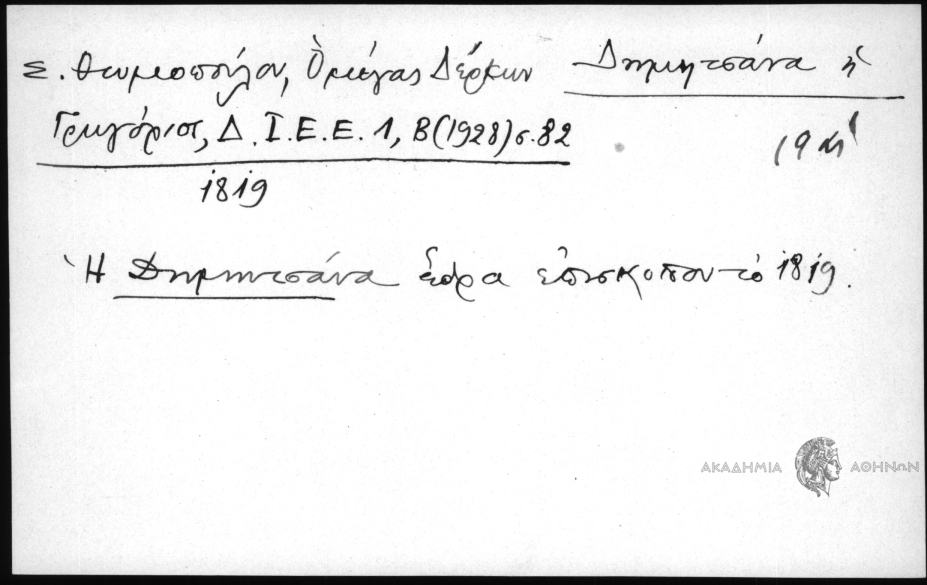 Σ. Θυμοπούλου, Ὁ μέγας Δέρκων Δημητσάνα ἡ
Γρηγόριος, Δ.Ι.Ε.Ε. 1, Β(1928) σ. 82
1819
Ἡ Δημητσάνα ἕδρα ἐπισκόπου τὸ 1819.
ΑΚΑΔΗΜΙΑ ΑΘΗΝΩΝ